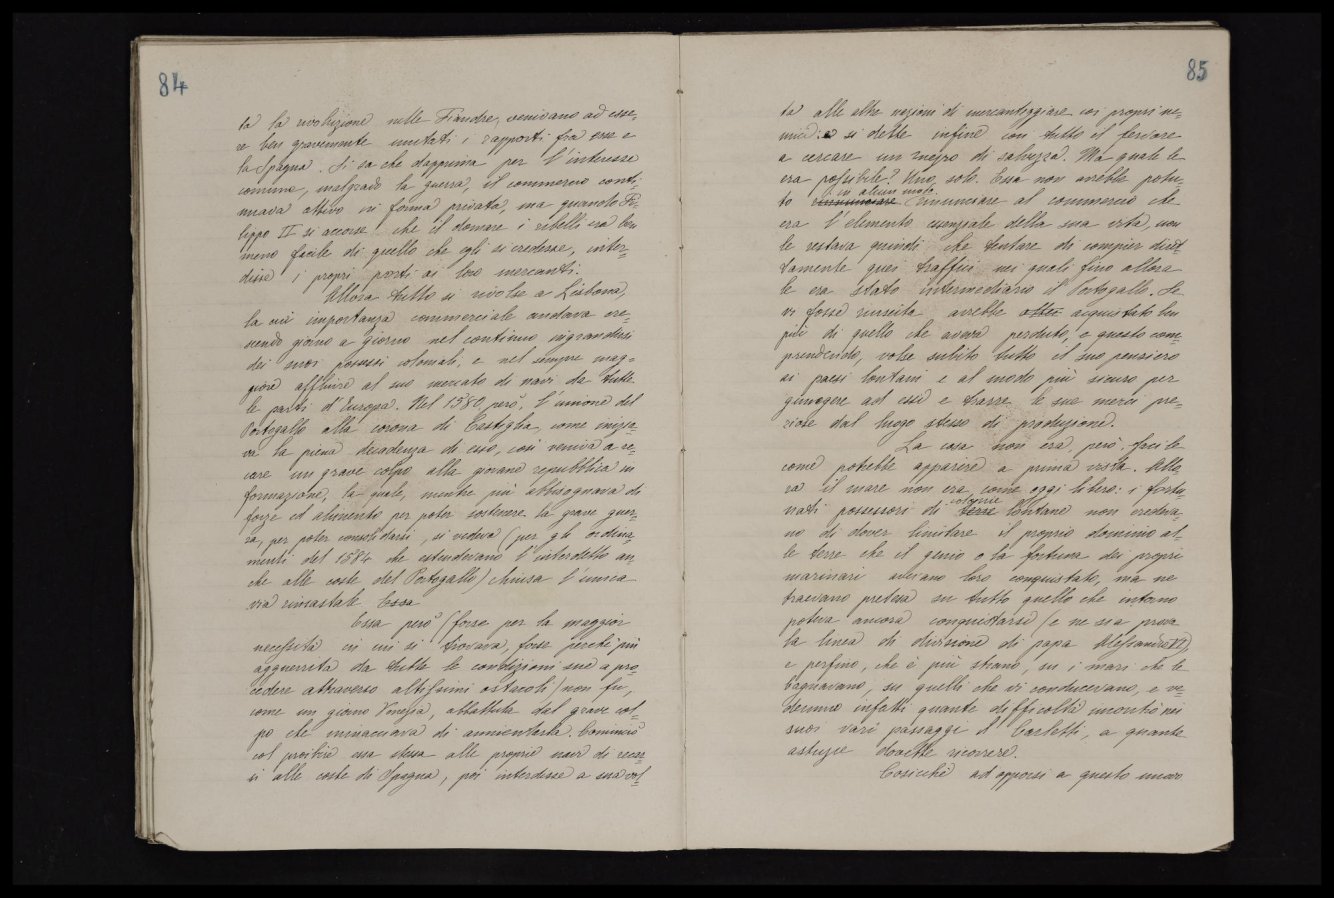 84
ta la rivoluzione nelle Fiandre, venivano ad esse=
re ben gravemente mutati i rapporti fra esse e
la Spagna. Si sa che dapprima per l'interesse
comune, malgrado la guerra, il commercio conti=
nuava attivo in forma privata, ma quando Fi=
lippo II si accorse che il domare i ribelli era ben
meno facile di quello che egli si credesse, inter=
disse i propri porti ai loro mercanti.
Allora tutto si rivolse a Lisbona,
la cui importanza commerciale andava cre=
scendo giorno a giorno nel continuo ingrandirsi
dei suoi possessi coloniali, e nel sempre mag=
giore affluire al suo mercato di navi da tutte
le parti d'Europa. Nel 1580, però, l'unione del
Portogallo alla corona di Castiglia, come inizia=
va la piena decadenza di esso, così veniva a re=
care un grave colpo alla giovane repubblica in
formazione, la quale, mentre più abbisognava di
forze ed alimento per poter sostenere la grave guer=
ra, per poter consolidarsi, si vedeva (per gli ordina=
menti del 1584 che estendevano l'interdetto an=
che alle coste del Portogallo) chiusa l'unica
via rimastale. Essa
Essa però (forse per la maggior
necessità in cui si trovava, forse perché più
agguerrita da tutte le condizioni sue a pro=
cedere attraverso altissimi ostacoli) non fu,
come un giorno Venezia, abbattuta dal grave col=
po che minacciava di annientarla. Cominciò
col proibire essa stessa alle proprie navi di recar=
si alle coste di Spagna, poi interdisse a sua vol=
85
ta alle altre nazioni di mercanteggiare coi propri ne=
mici: e si dette infine con tutto il fervore
a cercare un mezzo di salvezza. Ma quale le
era possibile? Uno, solo. Essa non avrebbe potu=
in alcun modo
to rinunciare rinunciare al commercio che
era l'elemento essenziale della sua vita, non
le restava quindi che tentare di compier diret=
tamente quei traffici nei quali fino allora
le era stato intermediario il Portogallo. Se
vi fosse riuscita avrebbe acquistato ben
più di quello che aveva perduto, e questo com=
prendendo, volse subito tutto il suo pensiero
ai paesi lontani e al modo più sicuro per
giungere ad essi e trarre le sue merci pre=
ziose dal luogo stesso di produzione.
La cosa non era però facile
come potrebbe apparire a prima vista. Allo=
ra il mare non era come oggi libero: i fortu=
colonie
nati possessori di terre lontane non credeva=
no di dover limitare il proprio dominio al=
le terre che il genio o la fortuna dei propri
marinari avevano loro conquistato, ma ne
traevano pretesa su tutto quello che intorno
poteva ancora conquistarsi (e ne sia prova
la linea di divisione di papa Alessandro VI),
e perfino, che è più strano, su i mari che le
bagnavano, su quelli che vi conducevano, e ve=
demmo infatti quante difficoltà incontrò nei
suoi vari passaggi il Carletti, a quante
astuzie dovette ricorrere.
Cosicché ad opporsi a questo nuovo